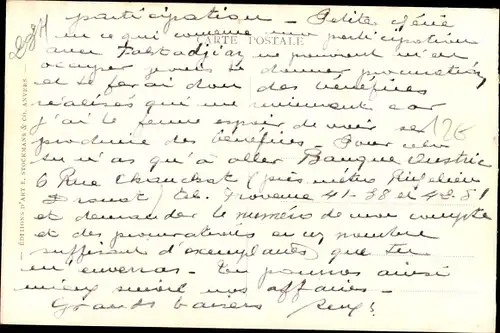 participation - Petite chérie
en ce qui concerne ma participation
CARTE POSTALE
avec ne pouvant m'en
occuper je vais te donner procuration
et te ferai don des bénéfices
réalisés qui me reviennent car
j'ai le ferme espoir de voir se
produire des bénéfices. Pour cela
tu n'as qu'à aller Banque Oustric
6 Rue Chauchat (près métro Richelieu
Drouot) Tel. Provence 41-38 et
et demander le numéro de mon compte
et des procurations en nombre
suffisant d'exemplaires que tu
m'enverras - Tu pourras ainsi
mieux suivre nos affaires -
Grands baisers
12€
— EDITIONS D'ART L. STOCKMANS & CO. ANVERS